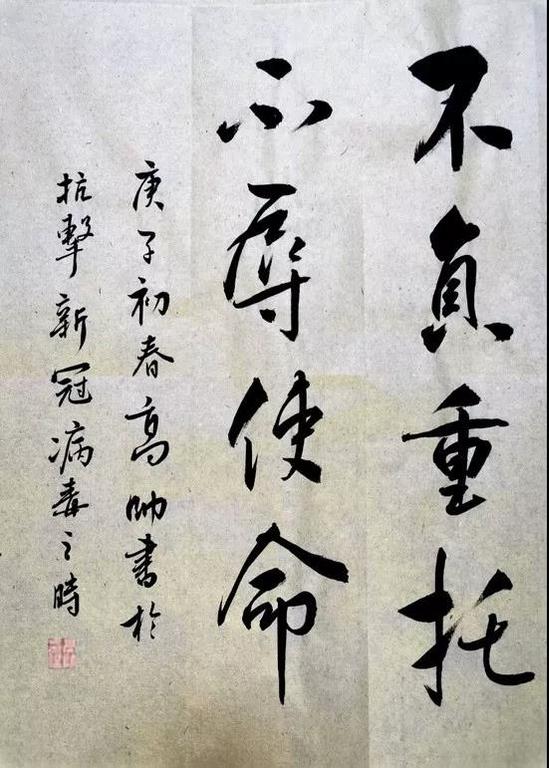 不負重托
不辱使命
庚子初春高帅書於
抗擊新冠病毒之時